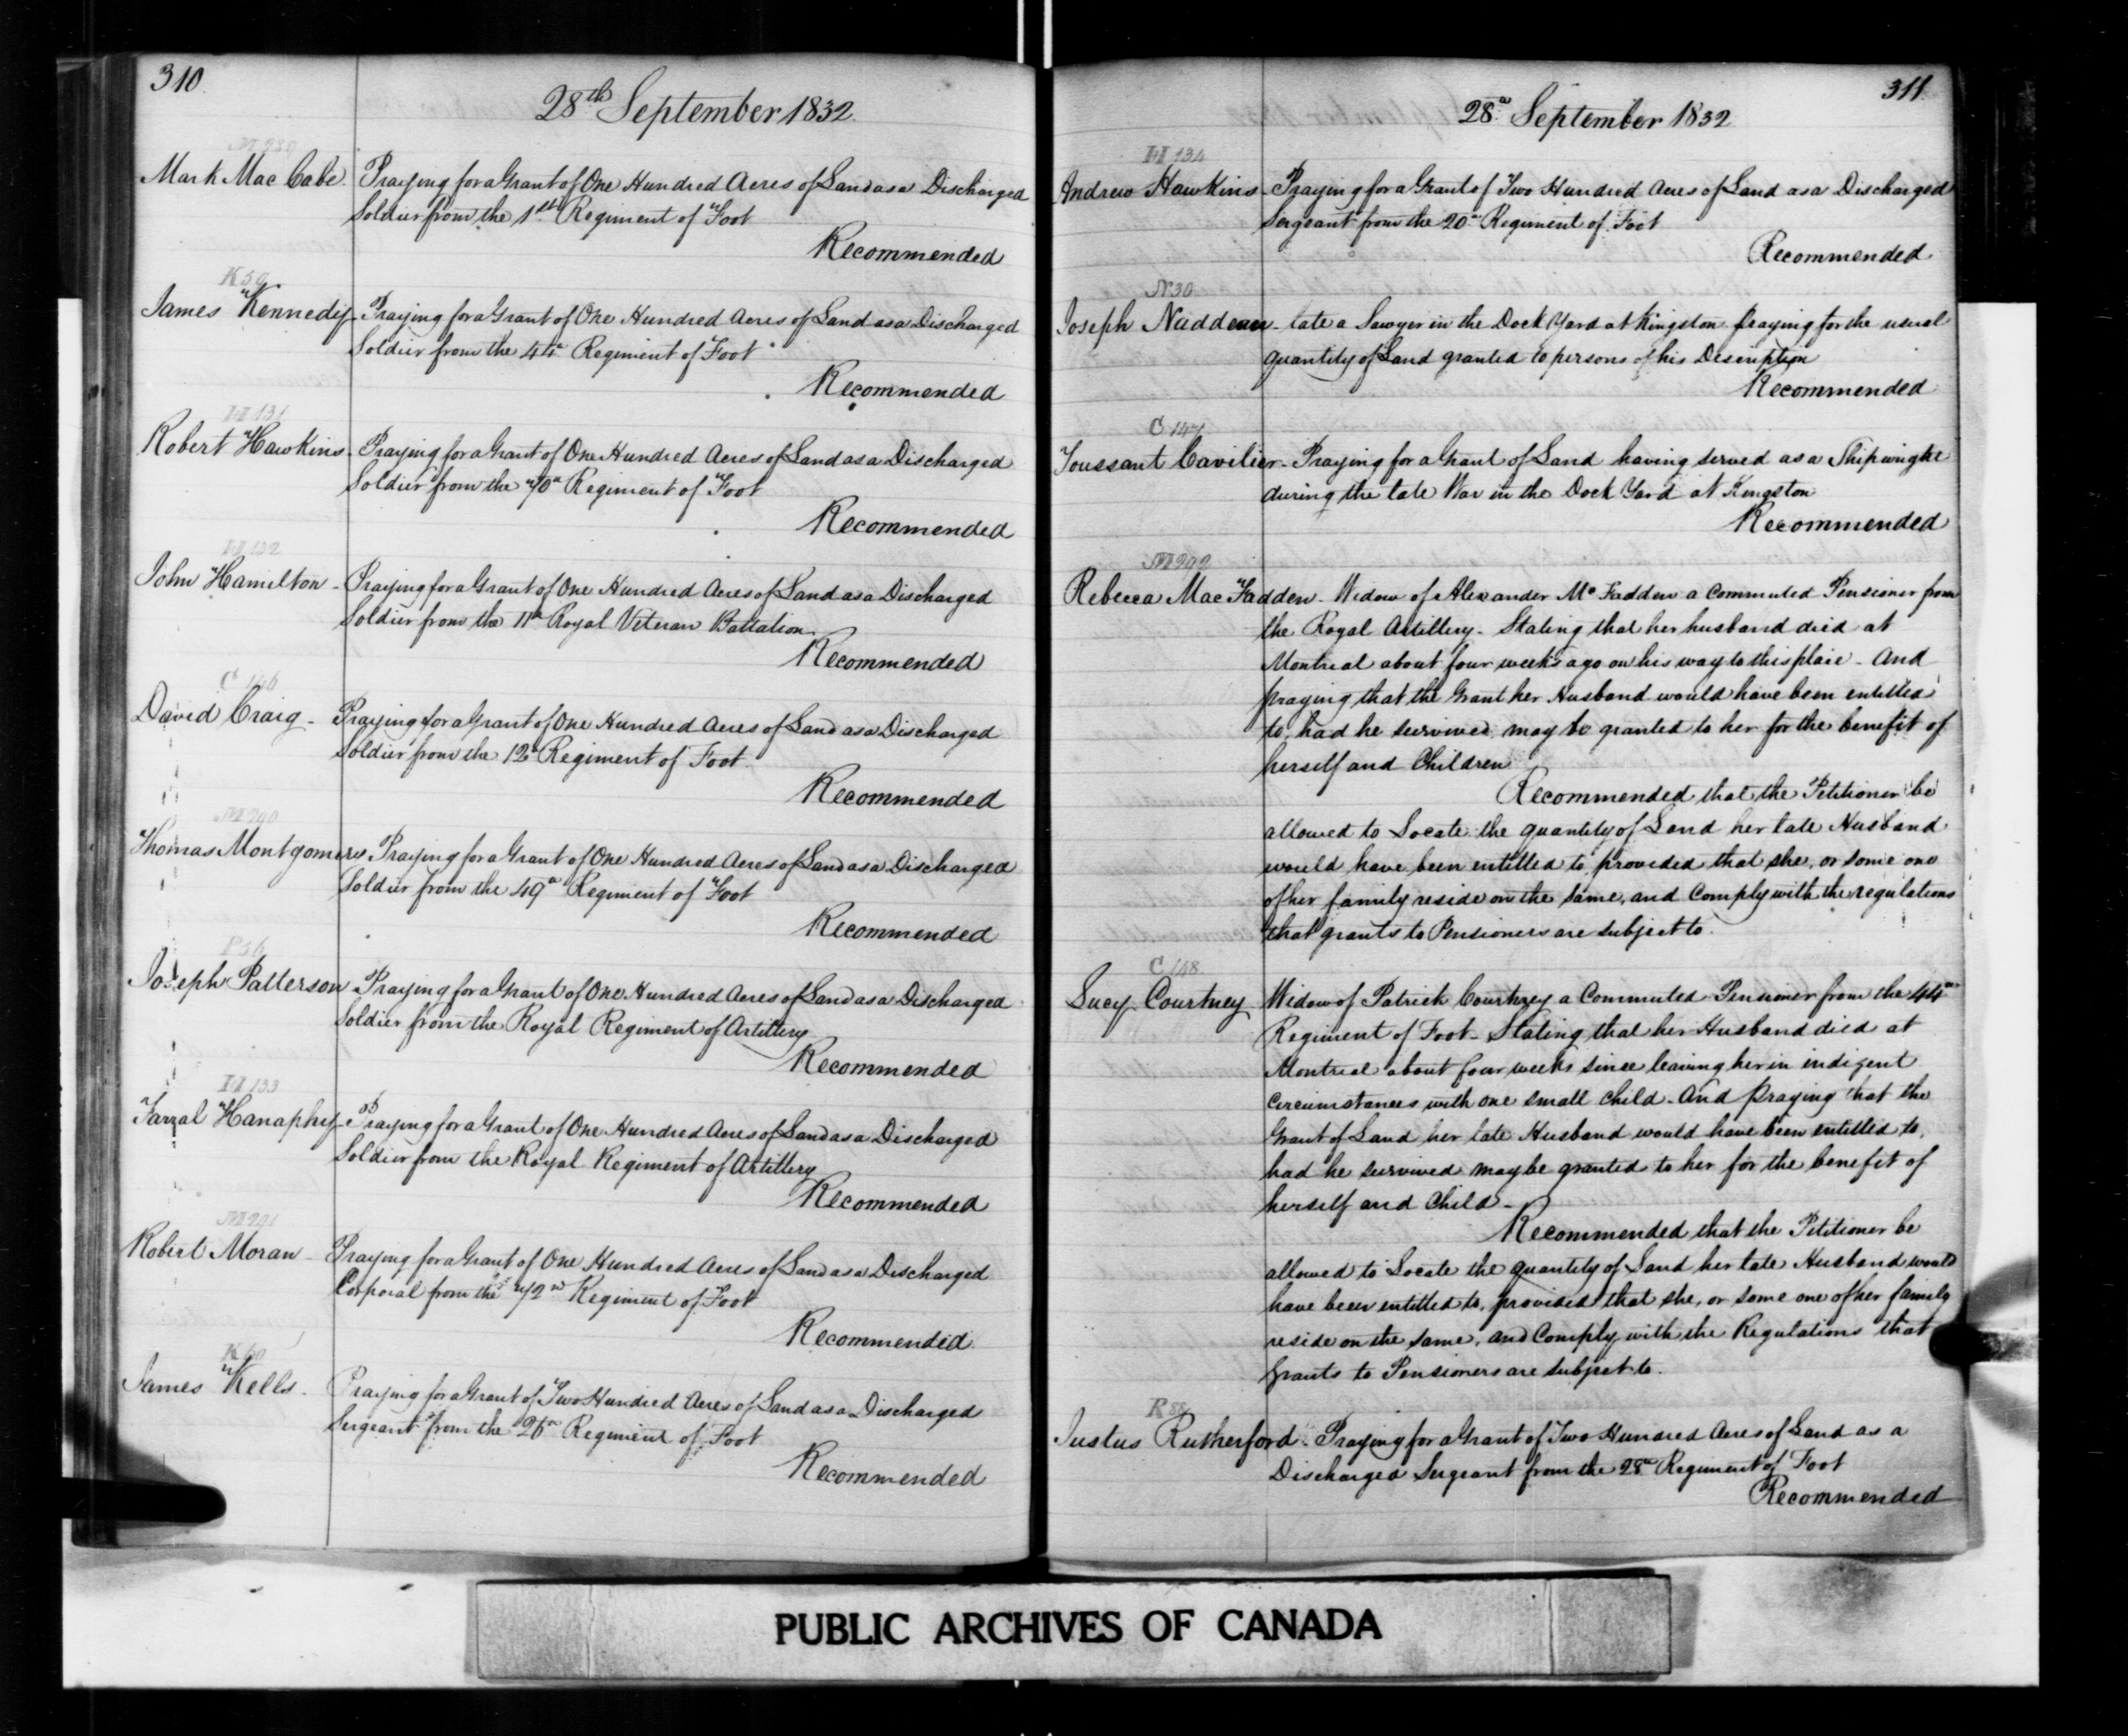 310
28th September 1832
Mark Mac Cabe. Praying for a Grant of One Hundred Acres of Land as a Discharged
Soldier from the 1st Regiment of Foot
Recommended
K 59
James Kennedy - Praying for a Grant of One Hundred Acres of Land as a Discharged
Soldier from the 44th Regiment of Foot
Recommended
H 131
Robert Hawkins - Praying for a Grant of One Hundred Acres of Land as a Discharged
Soldier from the 70th Regiment of Foot
Recommended
H 132
John Hamilton - Praying for a Grant of One Hundred Acres of Land as a Discharged
Soldier from the 11th Royal Veteran Battalion
Recommended
C 146
David Craig - Praying for a Grant of One Hundred Acres of Land as a Discharged
Soldier from the 12th Regiment of Foot
Recommended
M 290
Thomas Montgomery Praying for a Grant of One Hundred Acres of Land as a Discharged
Soldier from the 49th Regiment of Foot
Recommended
P 56
Joseph Patterson Praying for a Grant of One Hundred Acres of Land as a Discharged
Soldier from the Royal Regiment of Artillery
Recommended
H 133
Farral Hanaphy - Praying for a Grant of One Hundred Acres of Land as a Discharged
Soldier from the Royal Regiment of Artillery
Recommended
M 291
Robert Moran - Praying for a Grant of One Hundred Acres of Land as a Discharged
Corporal from the 72nd Regiment of Foot
Recommended
K 60
James Kells. Praying for a Grant of Two Hundred Acres of Land as a Discharged
Sergeant from the 26th Regiment of Foot
Recommended
311
28th September 1832
H 134
Andrew Hawkins - Praying for a Grant of Two Hundred Acres of Land as a Discharged
Sergeant from the 20th Regiment of Foot
Recommended
N 30
Joseph Naddeau - late a Sawyer in the Dock Yard at Kingston praying for the usual
quantity of Land granted to persons of his Description
Recommended
C 147
Toussant Cavilier - Praying for a Grant of Land having served as a Shipwright
during the late War in the Dock Yard at Kingston
Recommended
M 292
Rebecca Mac Fadden - Widow of Alexander Mc Fadden a Commuted Pensioner from
the Royal Artillery - Stating that her husband died at
Montreal about four weeks ago on his way to this place - And
praying that the Grant her Husband would have been entitled
to, had he survived may be granted to her for the benefit of
herself and Children
Recommended that the Petitioner be
allowed to Locate the quantity of Land her late Husband
would have been entitled to provided that she, or some one
of her family reside on the same, and Comply with the regulations
that grants to Pensioners are subject to.
C 148
Lucy Courtney Widow of Patrick Courtney a Commuted Pensioner from the 44th
Regiment of Foot - Stating that her Husband died at
Montreal about four weeks since leaving her in indigent
circumstances with one small child - And praying that the
Grant of Land her late Husband would have been entitled to,
had he survived may be granted to her for the benefit of
herself and Child -
Recommended that the Petitioner be
allowed to Locate the quantity of Land her late Husband would
have been entitled to, provided that she, or some one of her family
reside on the same, and Comply with the Regulations that
grants to Pensioners are subject to.
Justus Rutherford. Praying for a Grant of Two Hundred Acres of Land as a
Discharged Sergeant from the 28th Regiment of Foot
Recommended
PUBLIC ARCHIVES OF CANADA